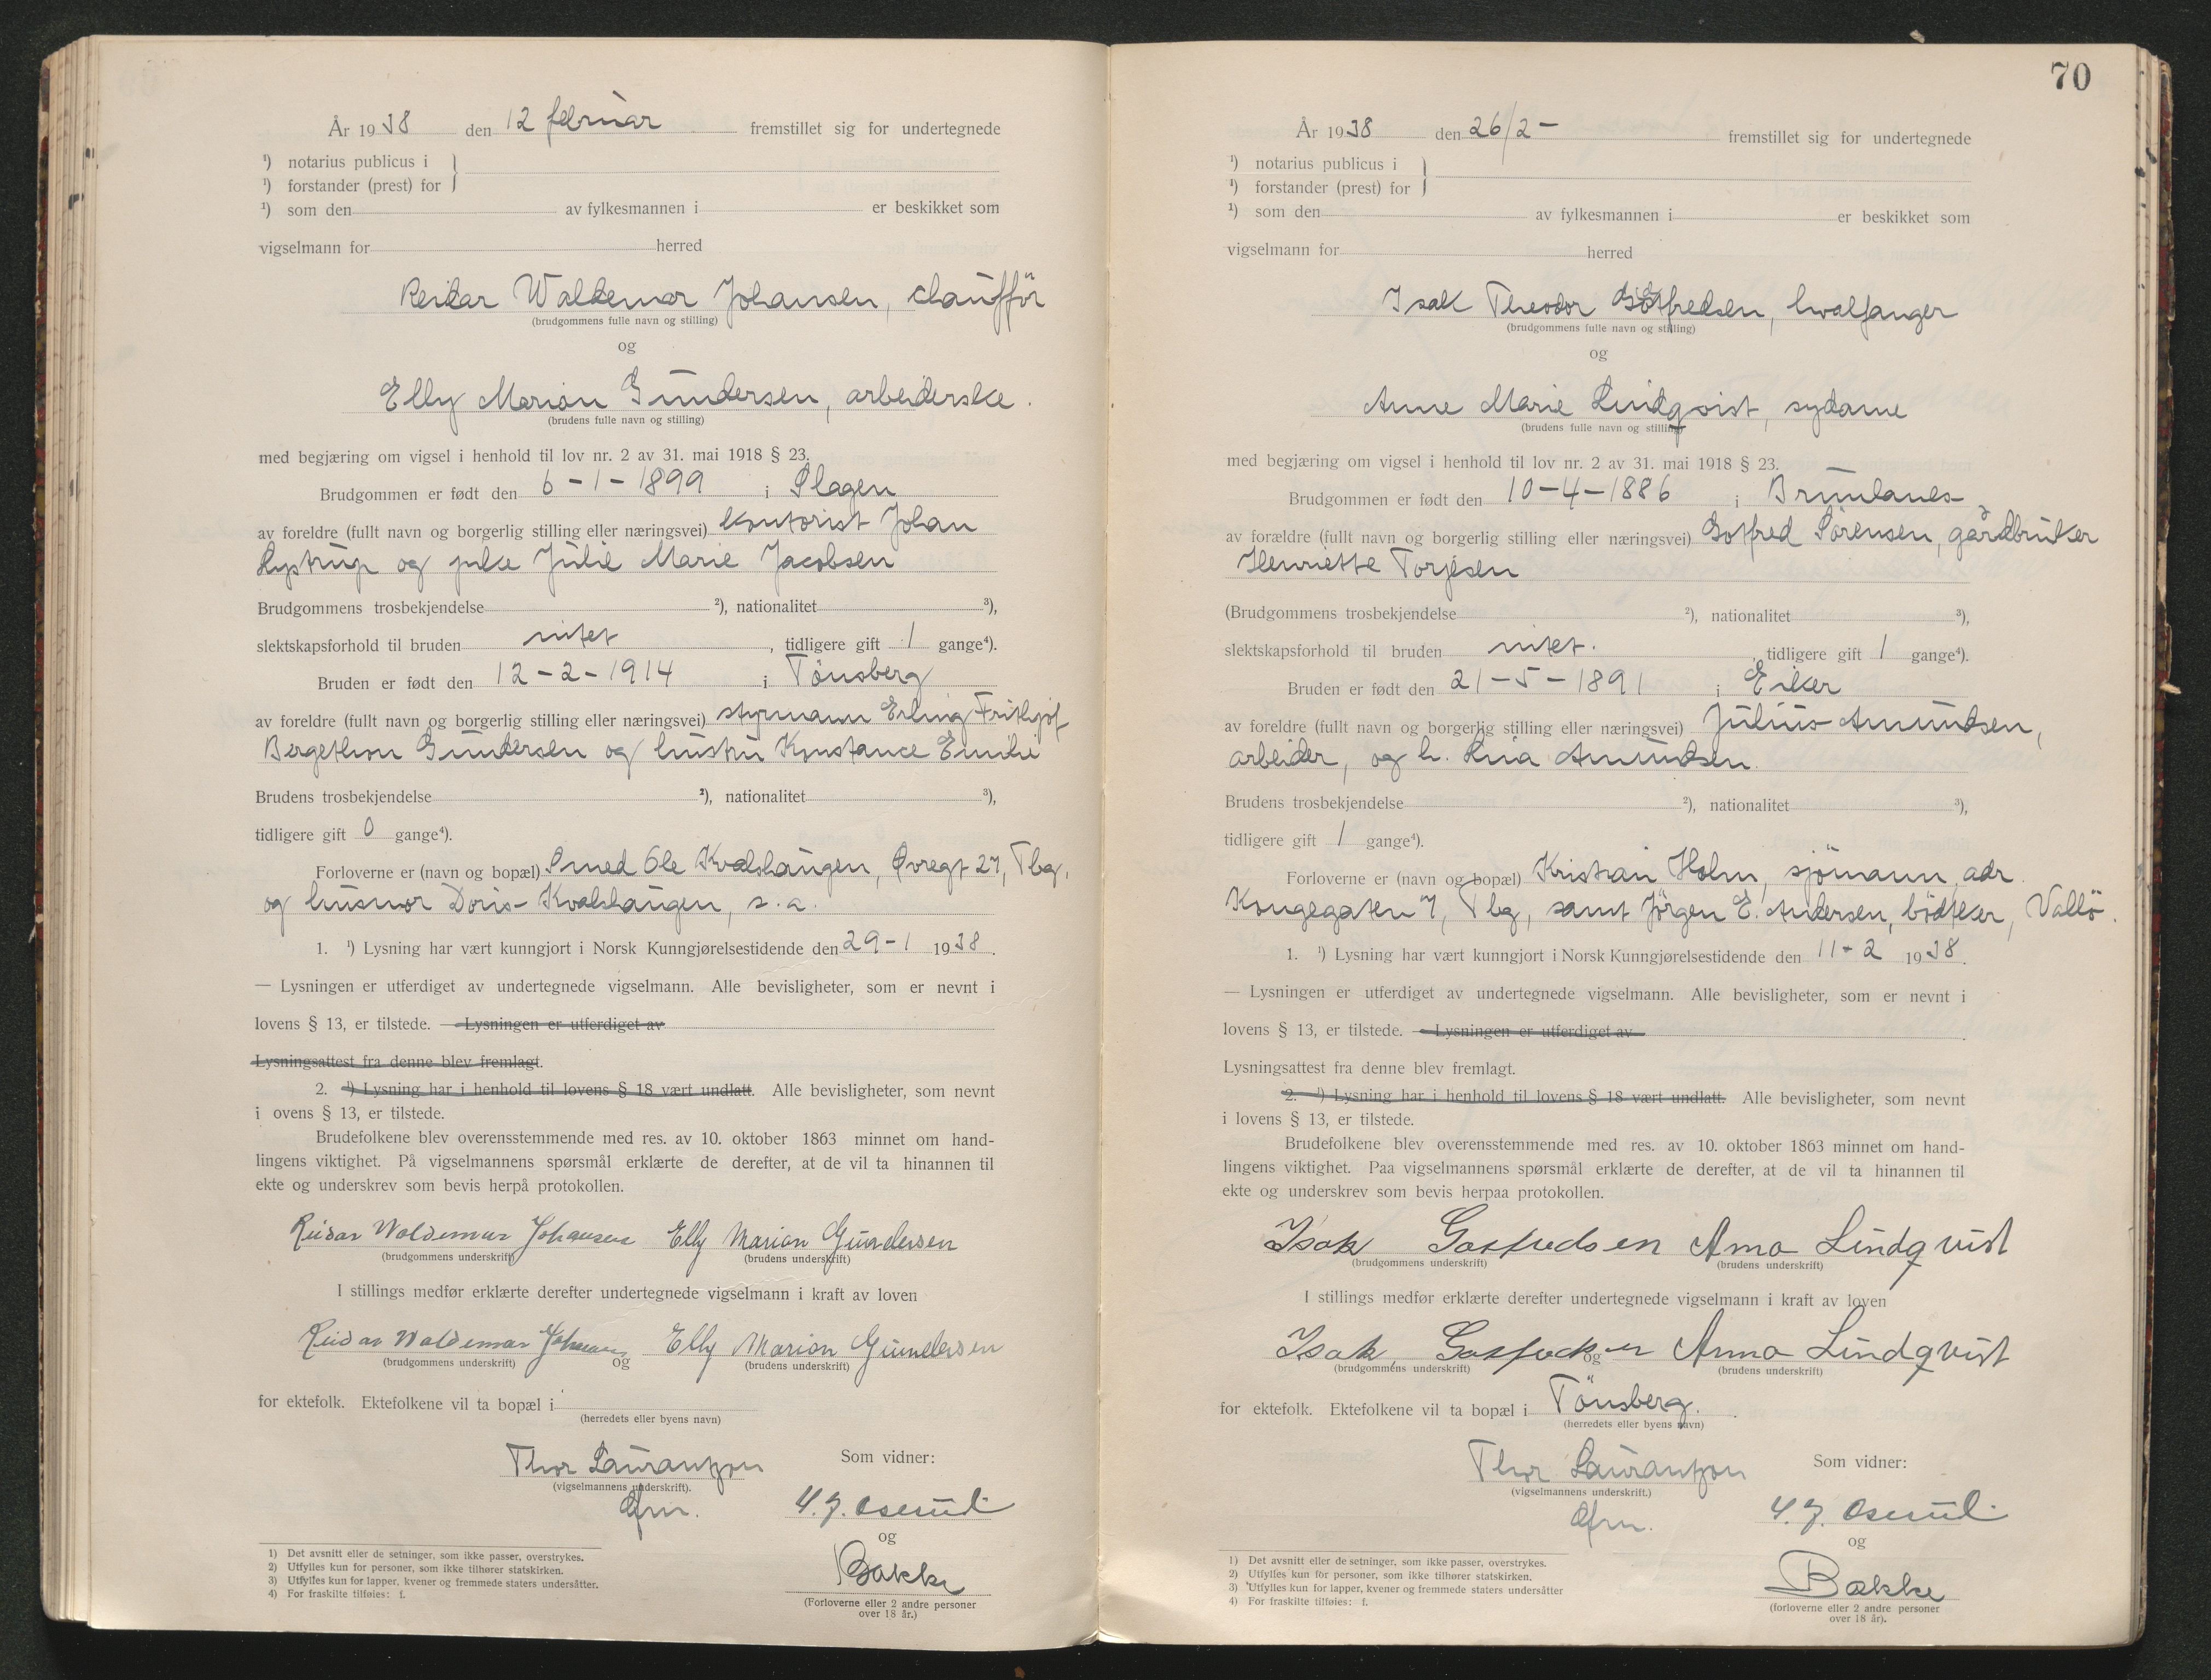 År 1938 den 12 februar fremstillet sig for undertegnede
¹) notarius publicus i }
¹) forstander (prest) for
¹) som den av fylkesmannen i er beskikket som
vigselmann for herred
Reidar Waldemar Johansen, chaufför
(brudgommens fulle navn og stilling)
og
Elly Marion Gundersen, arbeiderske.
(brudens fulle navn og stilling)
med begjæring om vigsel i henhold til lov nr. 2 av 31. mai 1918 § 23.
Brudgommen er født den 6-1-1899 i Slagen
av foreldre (fullt navn og borgerlig stilling eller næringsvei) Kontorist Johan
Rystrup og pike Julie Marie Jacobsen
Brudgommens trosbekjendelse ²), nationalitet ³),
slektskapsforhold til bruden intet, tidligere gift 1 gange⁴).
Bruden er født den 12-2-1914 i Tönsberg
av foreldre (fullt navn og borgerlig stilling eller næringsvei) styrmann Erling Frithjof
Bergethon Gundersen og hustru Konstance Emilie
Brudens trosbekjendelse ²), nationalitet ³),
tidligere gift 0 gange⁴).
Forloverne er (navn og bopæl) Smed Ole Kvalshaugen, Øvregt 27, Tbg.
og husmor Doris Kvalshaugen, s. a.
1. ¹) Lysning har vært kunngjort i Norsk Kunngjørelsestidende den 29-1 1938.
— Lysningen er utferdiget av undertegnede vigselmann. Alle bevisligheter, som er nevnt i
lovens § 13, er tilstede. — Lysningen er utferdiget av
Lysningsattest fra denne blev fremlagt.
2. ¹) Lysning har i henhold til lovens § 18 vært undlatt. Alle bevisligheter, som nevnt
i ovens § 13, er tilstede.
Brudefolkene blev overensstemmende med res. av 10. oktober 1863 minnet om hand-
lingens viktighet. På vigselmannens spørsmål erklærte de derefter, at de vil ta hinannen til
ekte og underskrev som bevis herpå protokollen.
Reidar Waldemar Johansen Elly Marion Gundersen
(brudgommens underskrift) (brudens underskrift)
I stillings medfør erklærte derefter undertegnede vigselmann i kraft av loven
Reidar Waldemar Johansen og Elly Marion Gundersen
(brudgommens underskrift) (brudens underskrift)
for ektefolk. Ektefolkene vil ta bopæl i
(herredets eller byens navn)
Thor Laurantzon Som vidner:
(vigselmannens underskrift).
cfm. 
og
Bakke
(Forloverne eller 2 andre personer
over 18 år.)
1) Det avsnitt eller de setninger, som ikke passer, overstrykes.
2) Utfylles kun for personer, som ikke tilhører statskirken.
3) Utfylles kun for lapper, kvener og fremmede staters undersåtter.
4) For fraskilte tilføies: f.
70
År 1938 den 26/2- fremstillet sig for undertegnede
¹) notarius publicus i }
¹) forstander (prest) for
¹) som den av fylkesmannen i er beskikket som
vigselmann for herred
Isak Theodor Gotfredsen, hvalfanger
(brudgommens fulle navn og stilling)
og
Anne Marie Lindqvist, sydame
(brudens fulle navn og stilling)
med begjæring om vigsel i henhold til lov nr. 2 av 31. mai 1918 § 23.
Brudgommen er født den 10-4-1886 i Brunlanes
av forældre (fullt navn og borgerlig stilling eller næringsvei) Gotfred Sörensen, gårdbruker
Henriette Torjesen
(Brudgommens trosbekjendelse ²), nationalitet ³),
slektskapsforhold til bruden intet. , tidligere gift 1 gange⁴).
Bruden er født den 21-5-1891 i Eiker
av foreldre (fullt navn og borgerlig stilling eller næringsvei) Julius Amundsen,
arbeider, og h. Lina Amundsen.
Brudens trosbekjendelse ²), nationalitet ³),
tidligere gift 1 gange⁴).
Forloverne er (navn og bopæl) Kristian Holm, sjömann, adr.
Kongegaten 7, Tbg, samt Jörgen E. Andersen, bödtker, Vallö.
1. ¹) Lysning har vært kunngjort i Norsk Kunngjørelsestidende den 11-2 1938.
— Lysningen er utferdiget av undertegnede vigselmann. Alle bevisligheter, som er nevnt i
lovens § 13, er tilstede. — Lysningen er utferdiget av
Lysningsattest fra denne blev fremlagt.
2. ¹) Lysning har i henhold til lovens § 18 vært undlatt. Alle bevisligheter, som nevnt
i lovens § 13, er tilstede.
Brudefolkene blev overensstemmende med res. av 10. oktober 1863 minnet om hand-
lingens viktighet. Paa vigselmannens spørsmål erklærte de derefter, at de vil ta hinannen til
ekte og underskrev som bevis herpaa protokollen.
Isak Gotfredsen Anna Lindqvist
(brudgommens underskrift) (brudens underskrift)
I stillings medfør erklærte derefter undertegnede vigselmann i kraft av loven
Isak Gotfredsen og Anna Lindqvist
(brudgommens underskrift) (brudens underskrift)
for ektefolk. Ektefolkene vil ta bopæl i Tönsberg.
(herredets eller byens navn)
Thor Laurantzon Som vidner:
(vigselmannens underskrift.)
cfm.
og
Bakke
(forloverne eller 2 andre personer
over 18 år).
1) Det avsnitt eller de setninger, som ikke passer, overstrykes.
2) Utfylles kun for personer, som ikke tilhører statskirken.
3) Utfylles kun for lapper, kvener og fremmede staters undersåtter
4) For fraskilte tilføies: f.